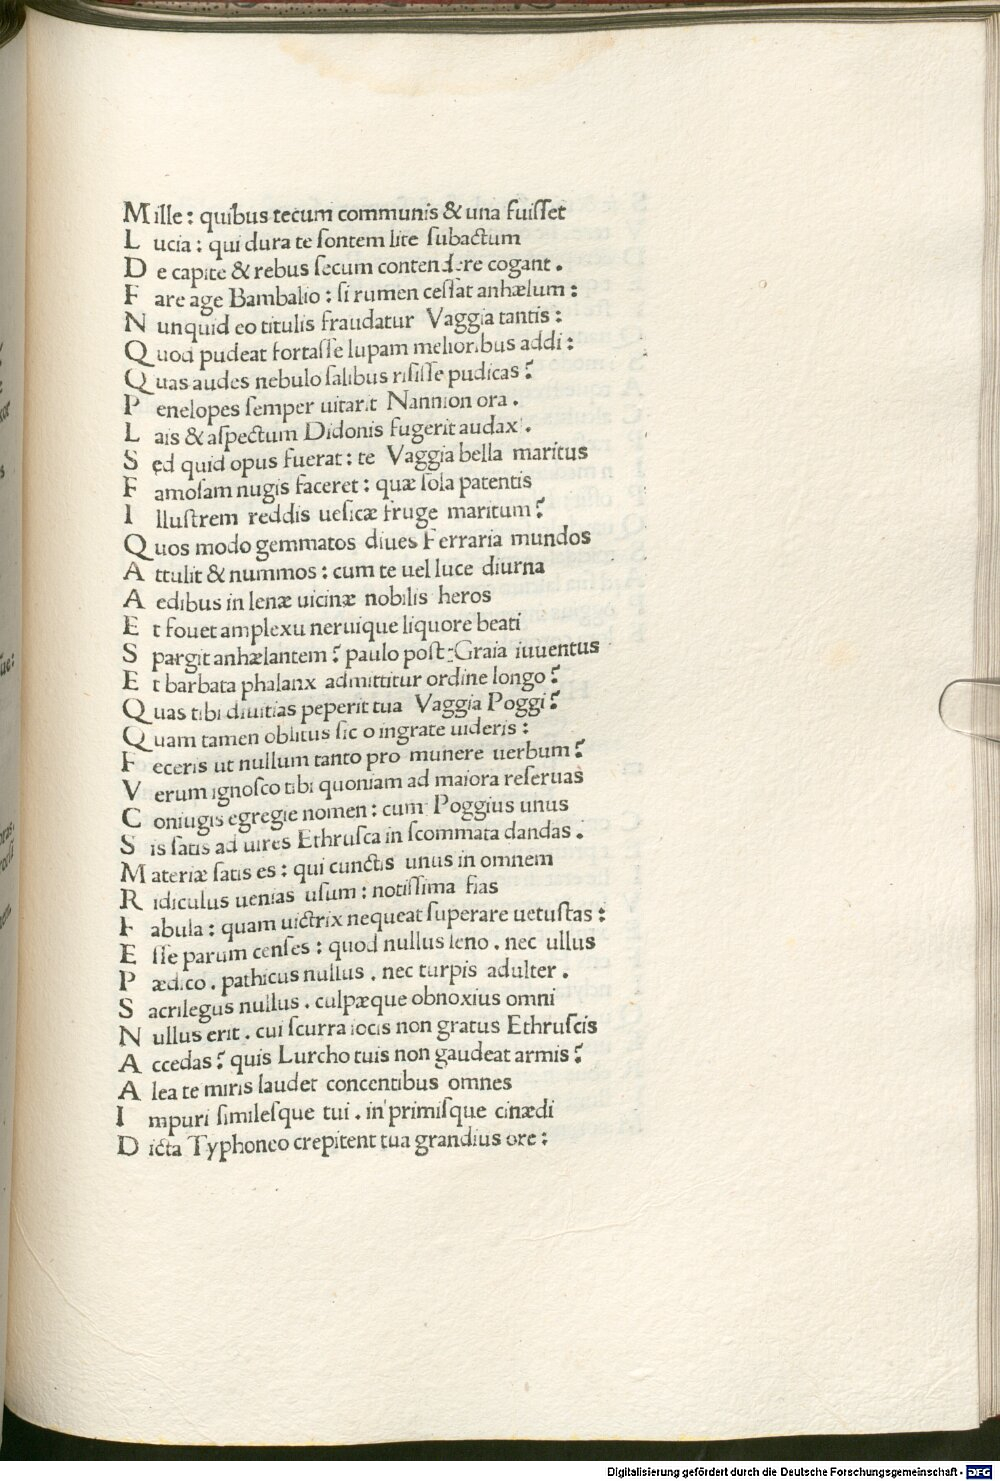 Mille: quibus tecum communis & una fuiſſet
Lucia: qui dura te ſontem lite ſubactum
De capite & rebus ſecum contendere cogant.
Fare age Bambalio: ſi rumen ceſſat anhælum:
Nunquid eo titulis fraudatur Vaggia tantis:
Quod pudeat fortaſſe lupam melioribus addi:
Quas audes nebulo ſalibus riſiſſe pudicas?
Penelopes ſemper uitarit Nannion ora.
Lais & aſpectum Didonis fugerit audax.
Sed quid opus fuerat: te Vaggia bella maritus
Famoſam nugis faceret: quæ ſola patentis
Illuſtrem reddis ueſicæ fruge maritum?
Quos modo gemmatos diues Ferraria mundos
Attulit & nummos: cum te uel luce diurna
Aedibus in lenæ uicinæ nobilis heros
Et fouet amplexu neruique liquore beati
Spargit anhælantem? paulo poſt Graia iuuentus
Et barbata phalanx admittitur ordine longo?
Quas tibi diuitias peperit tua Vaggia Poggi?
Quam tamen oblitus ſic o ingrate uideris:
Feceris ut nullum tanto pro munere uerbum?
Verum ignoſco tibi quoniam ad maiora reſeruas
Coniugis egregie nomen: cum Poggius unus
Sis ſatis ad uires Ethruſca in ſcommata dandas.
Materiæ ſatis es: qui cunctis unus in omnem
Ridiculus uenias uſum: notiſſima fias
Fabula: quam uictrix nequeat ſuperare uetuſtas:
Eſſe parum cenſes: quod nullus leno. nec ullus
Pædico. pathicus nullus. nec turpis adulter.
Sacrilegus nullus. culpæque obnoxius omni
Nullus erit. cui ſcurra iocis non gratus Ethruſcis
Accedas? quis Lurcho tuis non gaudeat armis?
Alea te miris laudet concentibus omnes
Impuri ſimileſque tui. in primiſque cinædi
Dicta Typhoneo crepitent tua grandius ore:
Digitalisierung gefördert durch die Deutsche Forschungsgemeinschaft - DFG